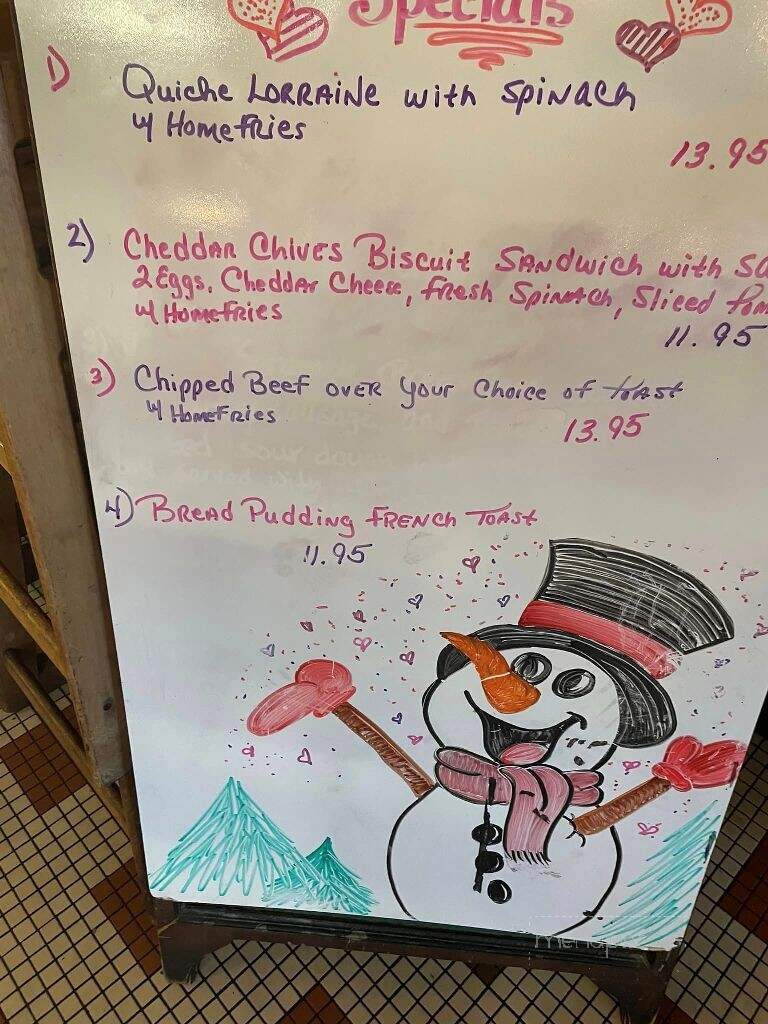 Specials
1) Quiche Lorraine with Spinach
w/ Homefries
13.95
2) Cheddar Chives Biscuit Sandwich with
2 Eggs, Cheddar Cheese, Fresh Spinach, Sliced
w/ Homefries
11.95
3) Chipped Beef over your Choice of toast
w/ Homefries
13.95
4) Bread Pudding French Toast
11.95